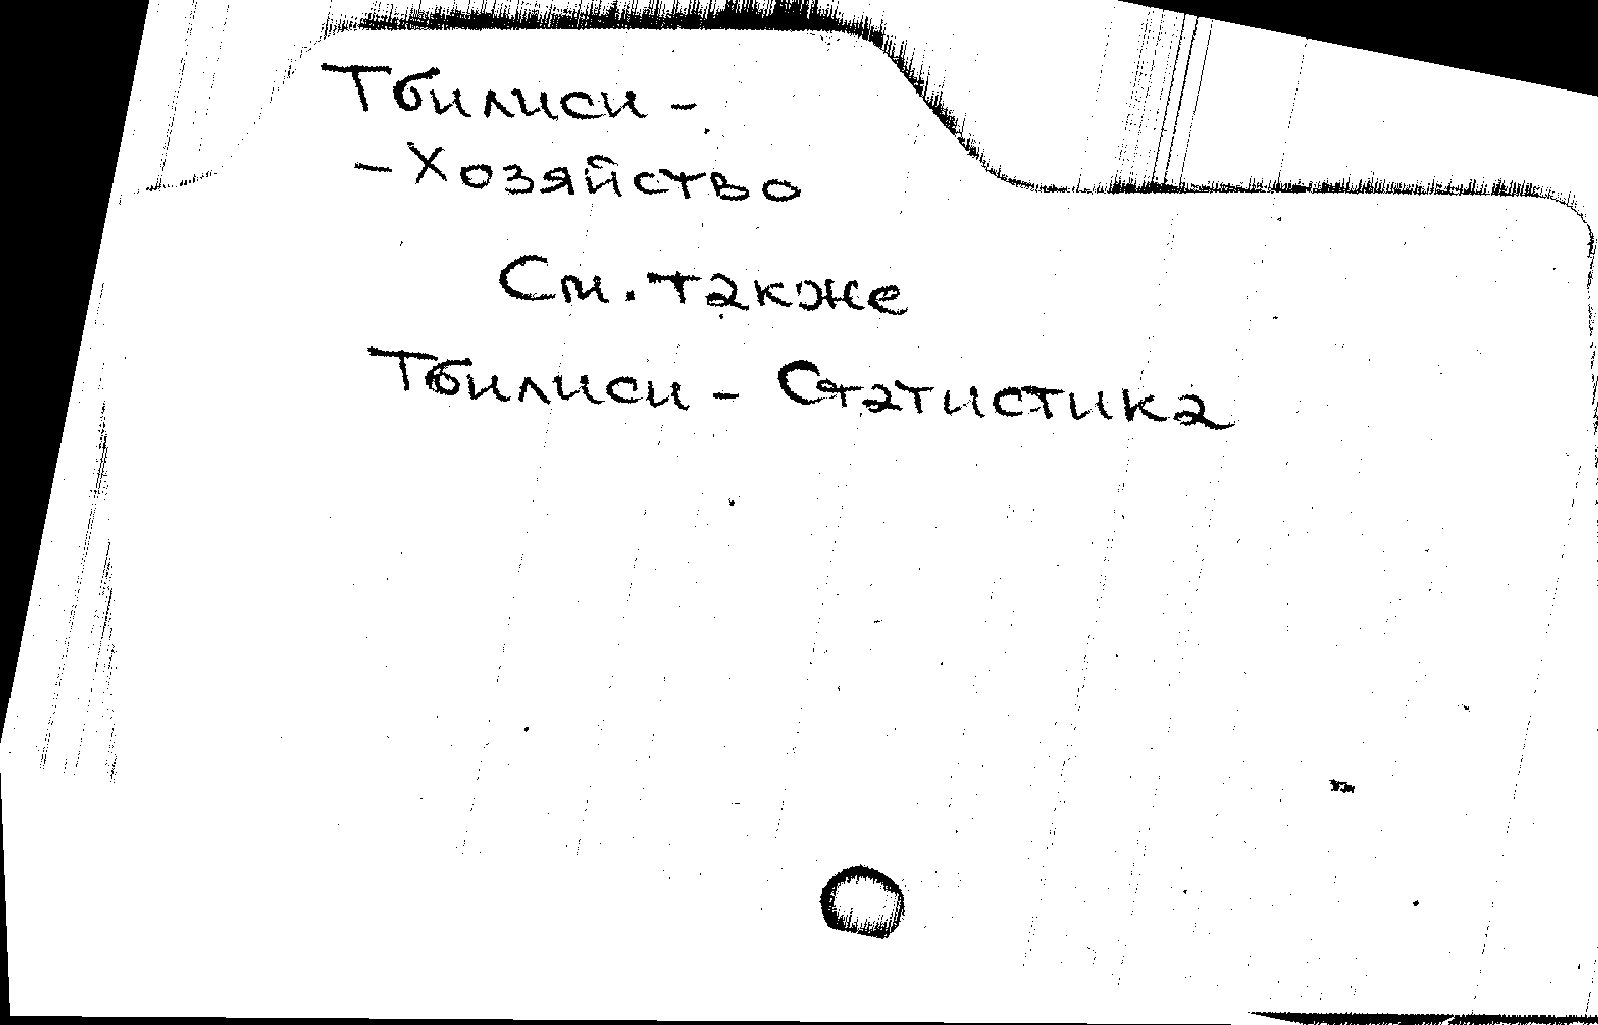 Тбилиси -
- Хозяйство
См. также
Тбилиси - Статистика